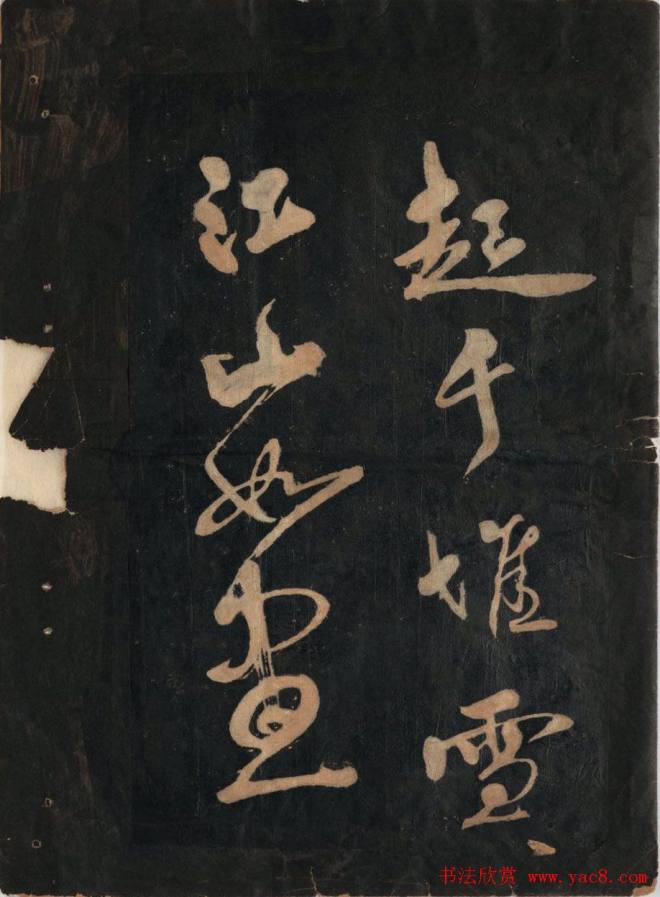 起千堆雪
江山如畫
书法欣赏 www.yac8.com